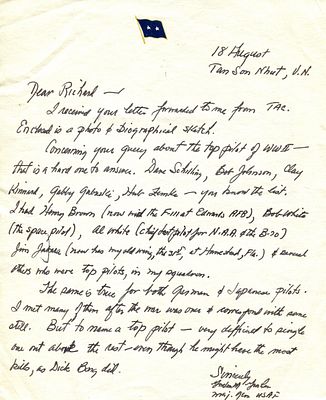 18 August
Tan Son Nhut, V.N.
Dear Richard —
I received your letter forwarded to me from TAC.
Enclosed is a photo & biographical sketch.
Concerning your query about the top pilot of WWII —
that is a hard one to answer. Dave Schilling, Bob Johnson, Clay
Kinnard, Gabby Gabreski, Hub Zemke — you know the list.
I had Henry Brown (now with the F-111 at Edwards AFB), Bob White
(the space pilot), Al White (chief test pilot for N.A.A. & the B-70)
Jim Jabara (now has my old wing, the 31st, at Homestead, Fla.) & several
others who were top pilots, in my squadron.
The same is true for both German & Japanese pilots.
I met many of them after the war was over & correspond with some
still. But to name a top pilot — very difficult to single
one out above the rest — even though he might have the most
kills, as Dick Bong did.
Sincerely
Maj. Gen USAF